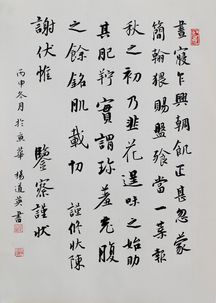 晝寢乍興輖飢正甚忽蒙
簡翰猥賜盤飧當一葉報
秋之初乃韭花逞味之始助
其肥羜實謂珍羞充腹
之餘銘肌載切 謹修狀陳
謝伏惟 鑒察謹狀
丙申冬月於 華 楊道英書